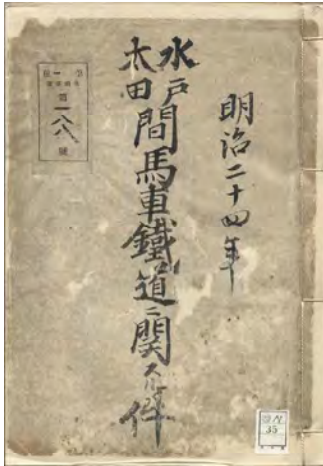 明治二十四年
水戸
太田
間馬車鐵道ニ関スル件
第
一八八
號
35